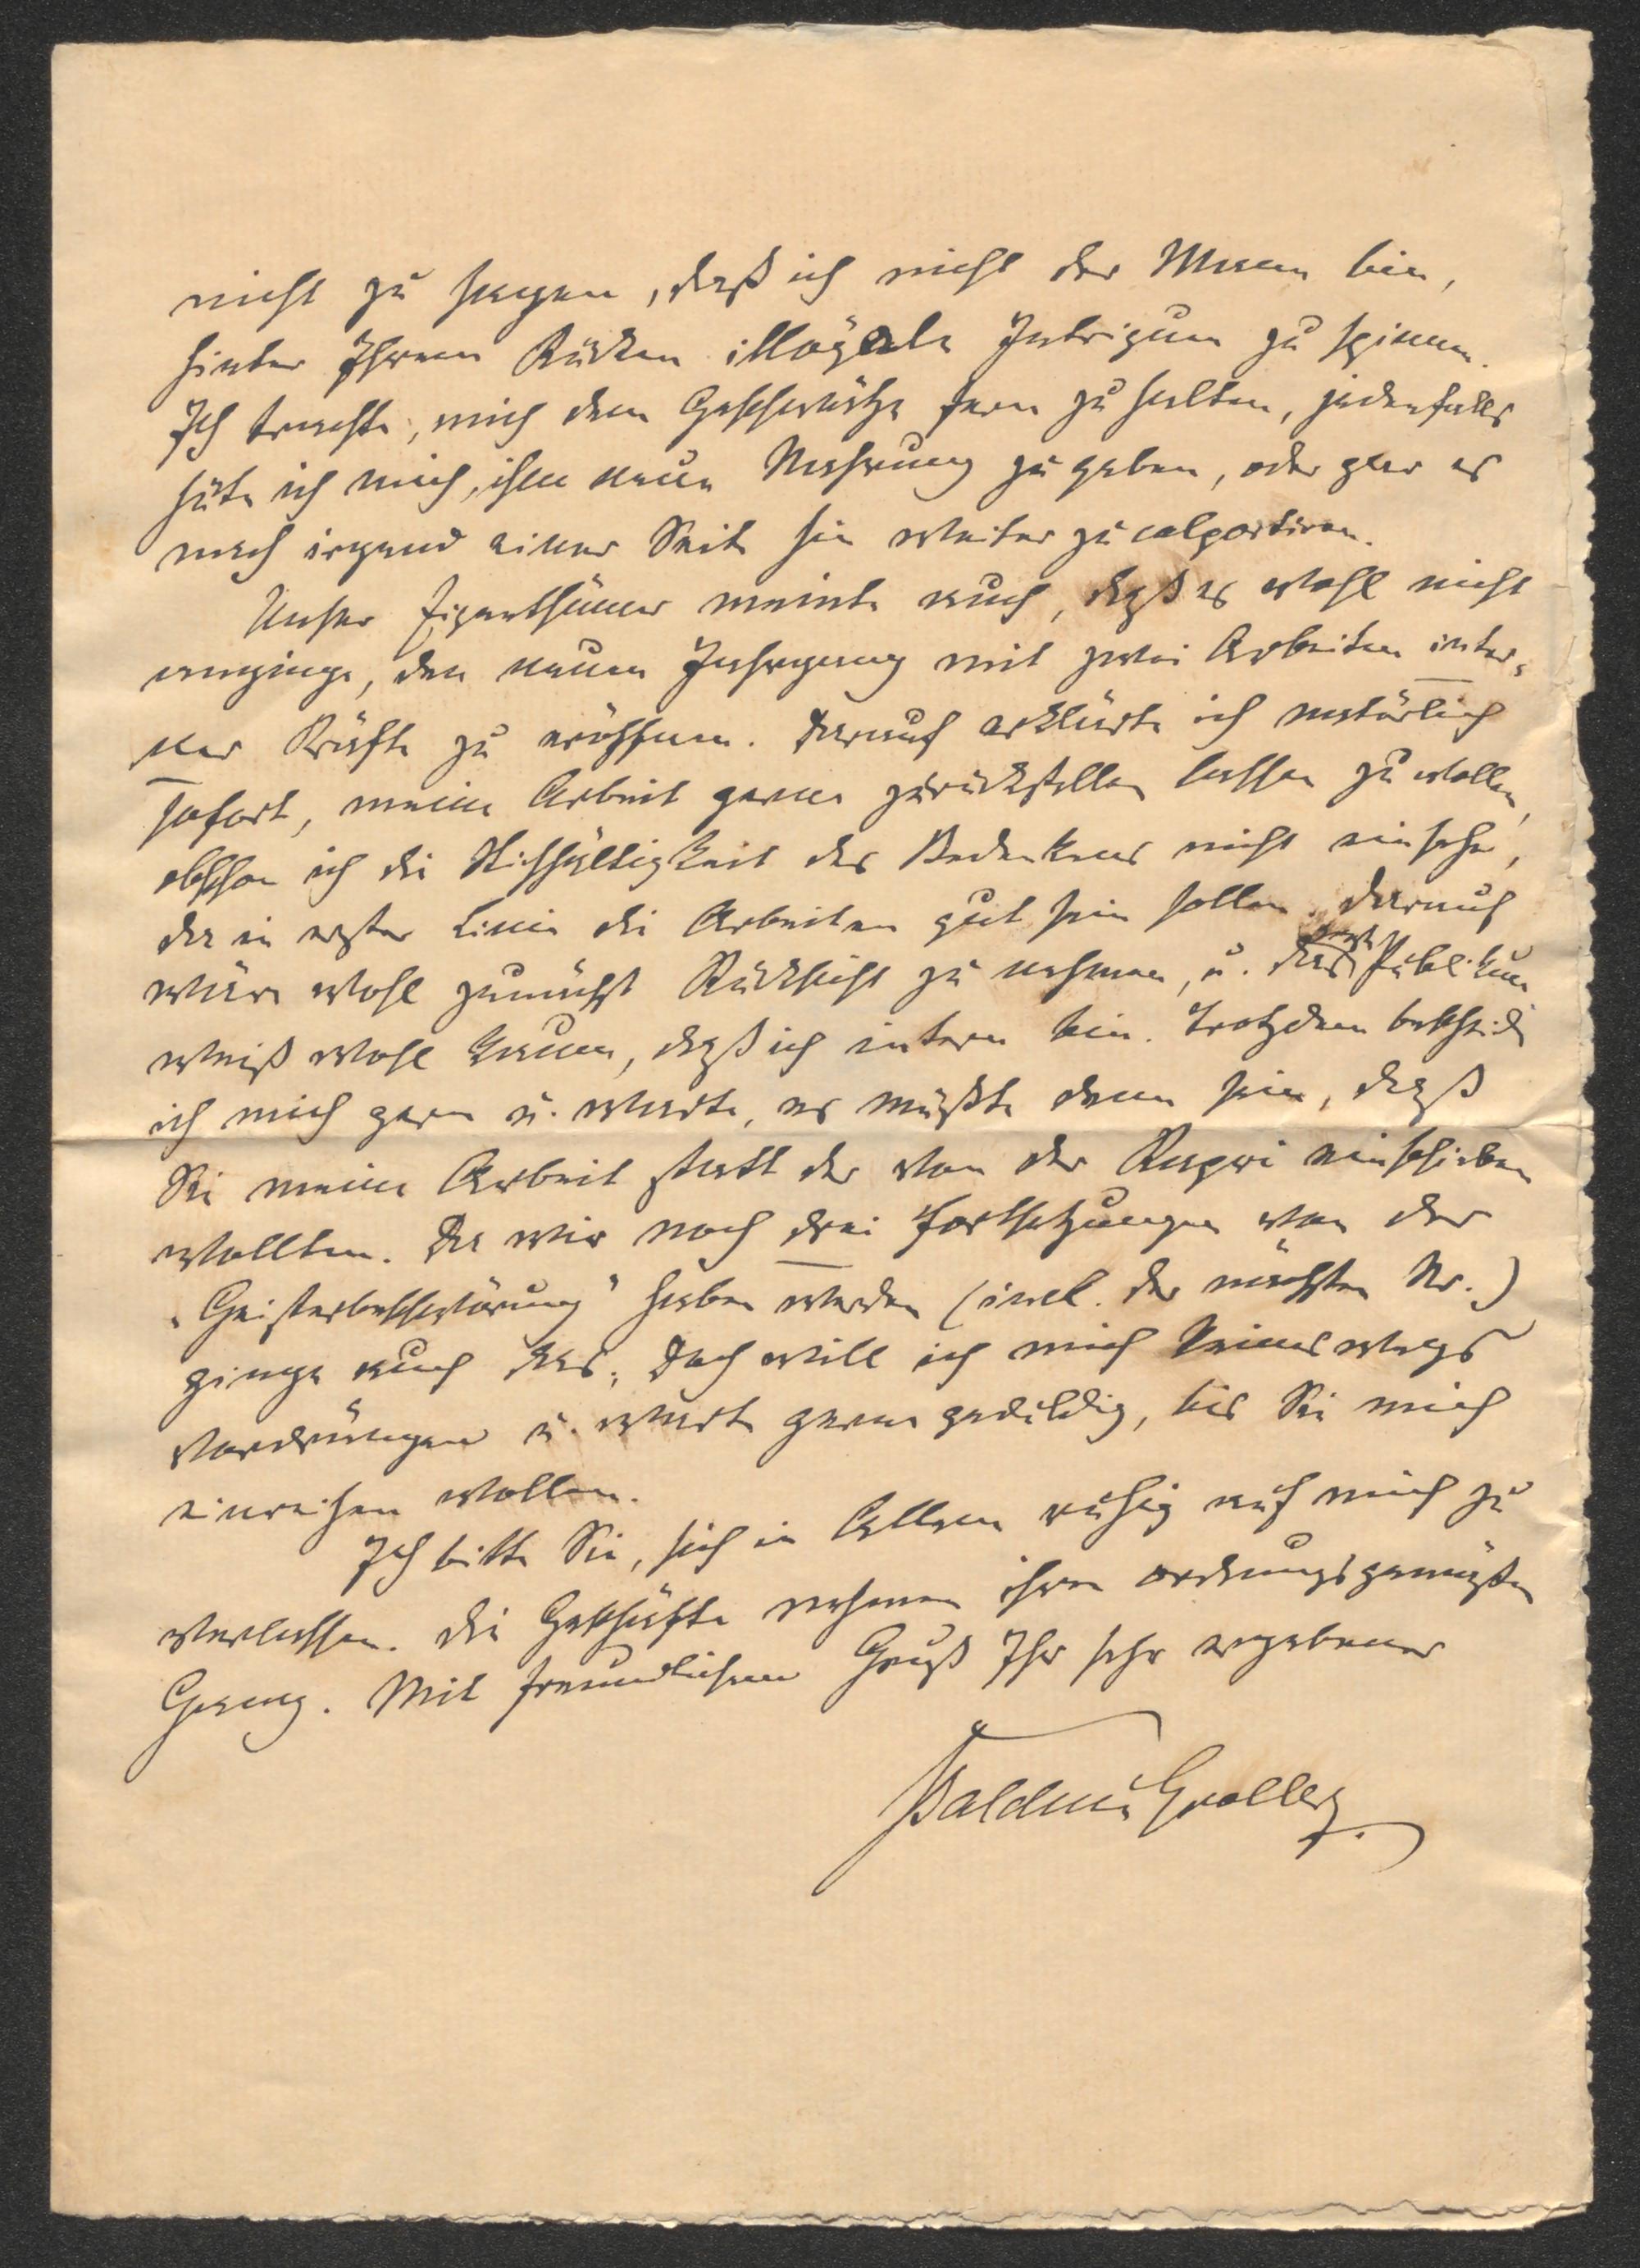 nicht zu sagen, daß ich nicht der Mann bin,
hinter Ihrem Rücken illoyale Intriguen zu spinnen.
Ich trachte, mich dem Geschwätze fern zu halten, jedenfalls
hüte ich mich, ihm neue Nahrung zu geben, oder gar es
nach irgend einer Seite hin weiter zu colportiren.
Unser Eigenthümer meinte auch, daß es wohl nicht
anginge, den neuen Jahrgang mit zwei Arbeiten inter-
ner Kräfte zu eröffnen. Darauf erklärte ich natürlich
sofort, meine Arbeit gerne zurückstellen lassen zu wollen,
obschon ich die Stichhältigkeit des Bedenkens nicht einsehe,
da in erster Linie die Arbeiten gut sein sollen. Darauf
wäre wohl zunächst Rücksicht zu nehmen, u. das Publikum
weiß wohl kaum, daß ich intern bin. Trotzdem bescheide
ich mich gern u. warte, es müßte denn sein, daß
Sie meine Arbeit statt der von der Kapri einschieben
wollten. Da wir noch drei Fortsetzungen von der
„Geisterbeschwörung" haben werden (incl. der nächsten Nr.)
ginge auch das. Doch will ich mich keineswegs
vordrängen u. warte gerne geduldig, bis Sie mich
einreihen wollen.
Ich bitte Sie, sich in Allem ruhig auf mich zu
verlassen. Die Geschäfte nehmen ihren ordnungsgemäßen
Gang. Mit freundlichem Gruß Ihr sehr ergebener
Balduin Groller.